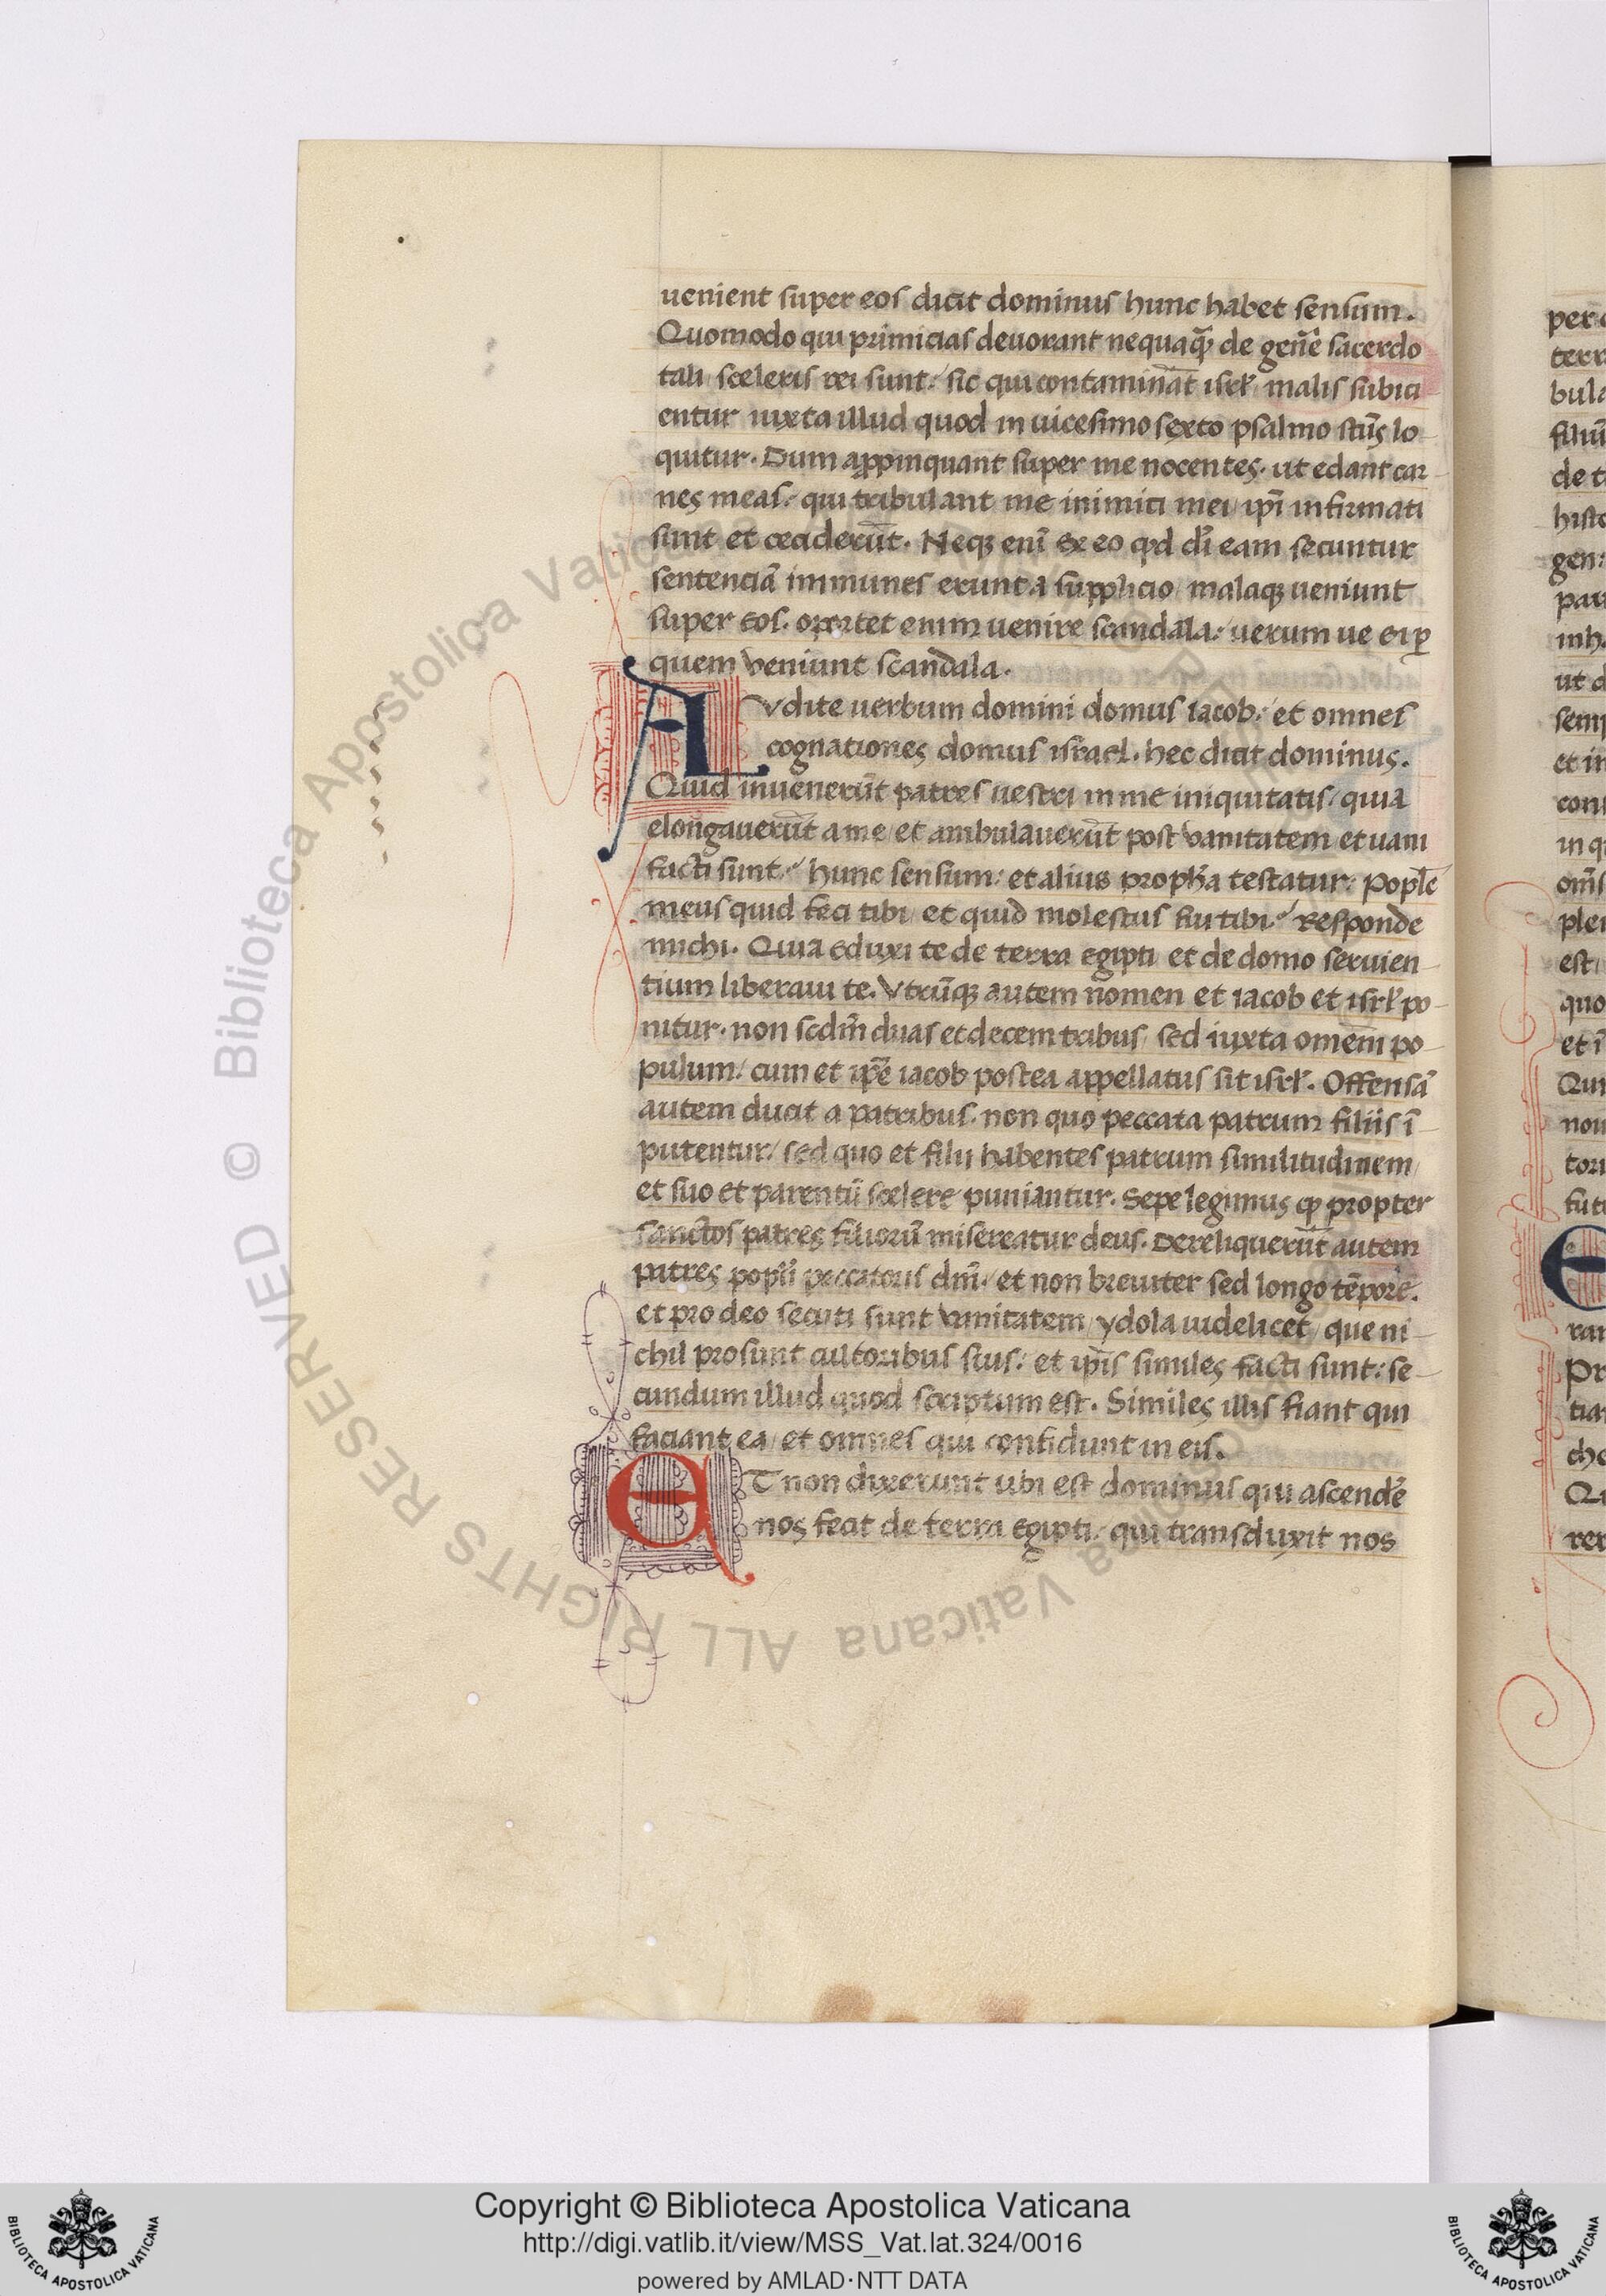 uenient super eos dicit dominus hunc habet sensum.
Quomodo qui primicias deuorant nequaq̃ de geñe sacerdo
tali sceleris rei sunt: sic qui contaminãt isrl̃ malis subici
entur iuxta illud quod in uicesimo sexto psalmo sctũs lo
quitur. Dum appinquant super me nocentes. ut edant car
nes meas: qui tribulant me inimici mei ip̃i infirmati
sunt et ceciderũt. Neqꝫ enĩ ex eo qd dĩ eam secuntur
sentenciã immunes erunt a supplicio malaqꝫ ueniunt
super eos. oportet enim uenire scandala: uerum ue ei ꝑ
quem veniunt scandala.
Avdite uerbum domini domus iacob: et omnes
cognationes domus israel. hec dicit dominus.
Quid inuenerũt patres uestri in me iniquitatis quia
elongauerũt a me et ambulauerũt post vanitatem et uani
facti sunt: hunc sensum: et alius proph̃a testatur: Popl̃e
meus quid feci tibi et quid molestus fui tibi: Responde
michi. Quia eduxi te de terra egipti et de domo seruien
tium liberaui te. Vtrũqꝫ autem nomen et iacob et isrl̃ po
nitur. non scdm̃ duas et decem tribus sed iuxta omem̃ po
pulum: cum et ip̃e iacob postea appellatus sit isrl̃. Offensã
autem ducit a patribus. non quo peccata patrum filiis ĩ
putentur: sed quo et filii habentes patrum similitudinem
et suo et parentũ scelere puniantur. Sepe legimus ꝙ propter
sanctos patres filiorũ misereatur deus. Dereliquerũt autem
patres popl̃i peccatoris dm̃: et non breuiter sed longo tẽpore.
et pro deo secuti sunt vanitatem ydola uidelicet que ni
chil prosunt cultoribus suis: et ip̃is similes facti sunt: se
cundum illud quod scriptum est. Similes illis fiant qui
faciant ea et omnes qui confidunt in eis.
ET non dixerunt ubi est dominus qui ascendẽ
nos fecit de terra egipti: qui transduxit nos
Copyright © Biblioteca Apostolica Vaticana
http://digi.vatlib.it/view/MSS_Vat.lat.324/0016
powered by AMLAD·NTT DATA